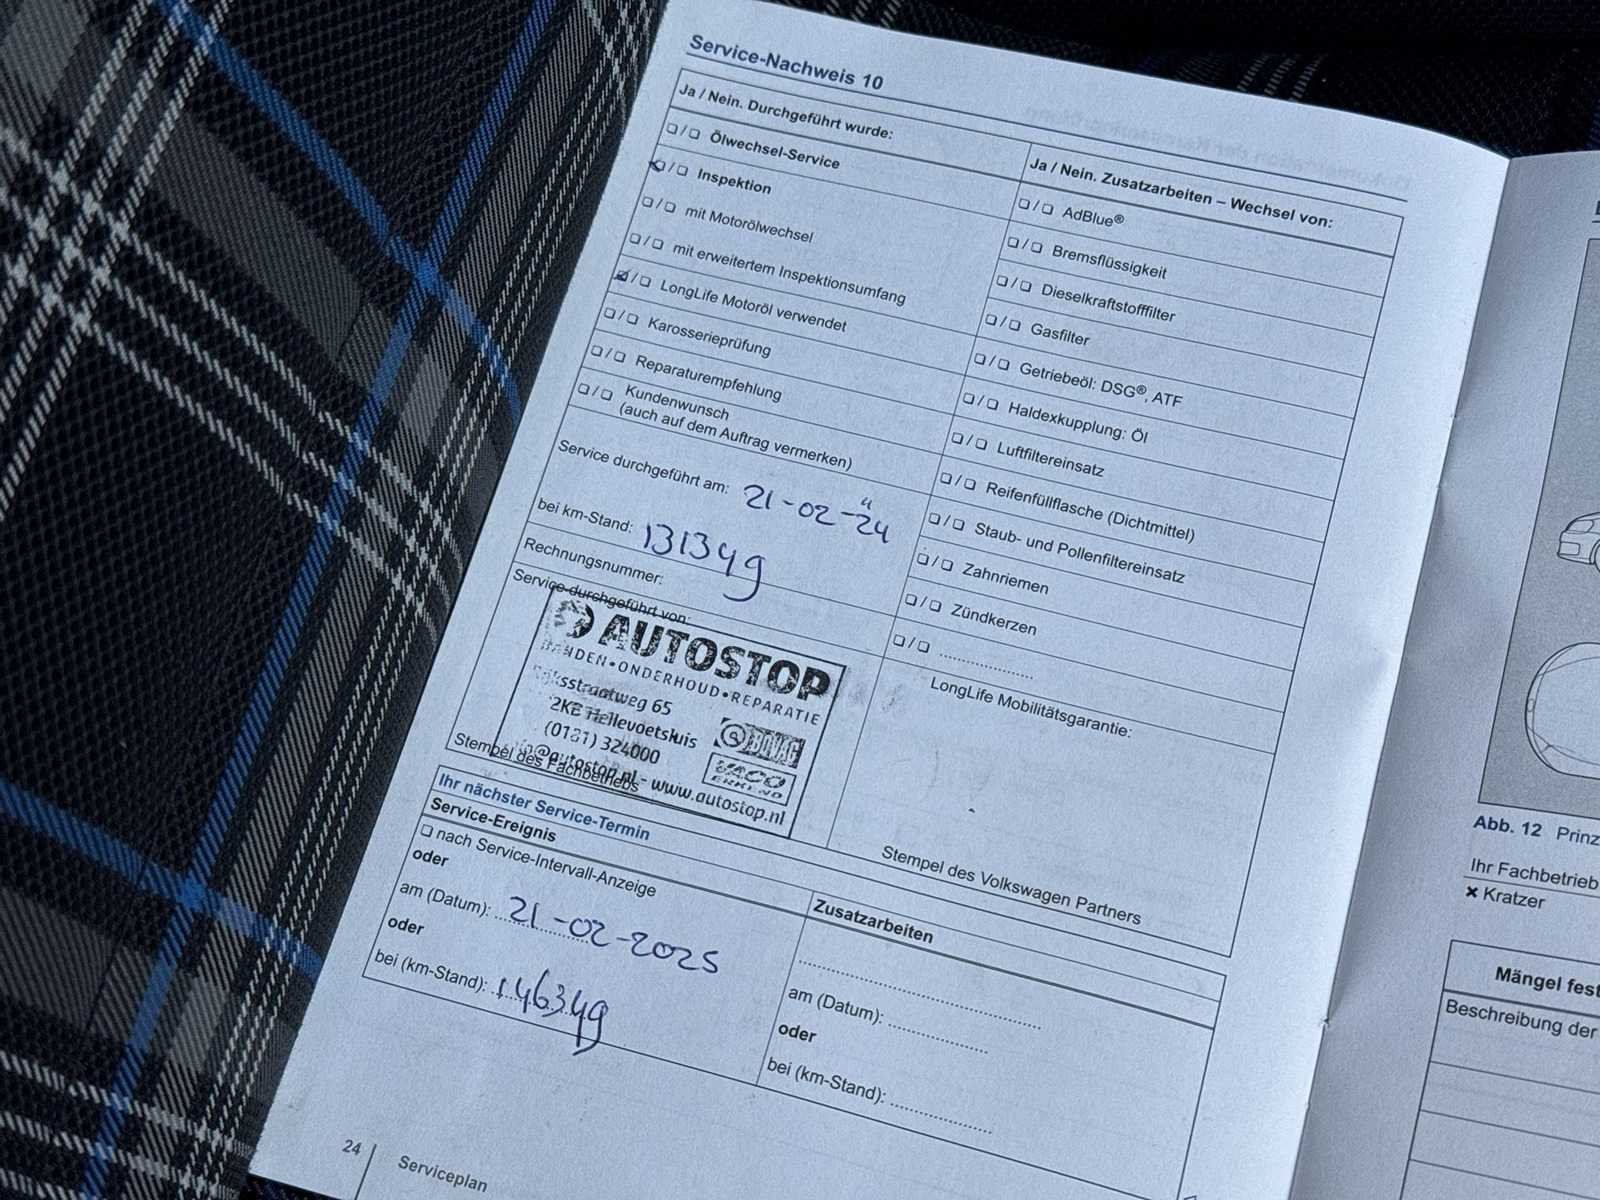 Service-Nachweis 10
Ja / Nein. Durchgeführt wurde:
❏ / ❏ Ölwechsel-Service
❏ / ❏ Inspektion
❏ / ❏ mit Motorölwechsel
❏ / ❏ mit erweitertem Inspektionsumfang
❏ / ❏ LongLife Motoröl verwendet
❏ / ❏ Karosserieprüfung
❏ / ❏ Reparaturempfehlung
❏ / ❏ Kundenwunsch
(auch auf dem Auftrag vermerken)
Service durchgeführt am: 21-02-24
bei km-Stand: 131349
Rechnungsnummer:
Service durchgeführt von:
AUTOSTOP
BANDEN•ONDERHOUD•REPARATIE
Rijksstraatweg 65
2KE Hellevoetsluis
(0181) 324000
info@autostop.nl - www.autostop.nl
BOVAG
VACO
ERKEND
Stempel des Fachbetriebs
Ja / Nein. Zusatzarbeiten – Wechsel von:
❏ / ❏ AdBlue®
❏ / ❏ Bremsflüssigkeit
❏ / ❏ Dieselkraftstofffilter
❏ / ❏ Gasfilter
❏ / ❏ Getriebeöl: DSG®, ATF
❏ / ❏ Haldexkupplung: Öl
❏ / ❏ Luftfiltereinsatz
❏ / ❏ Reifenfüllflasche (Dichtmittel)
❏ / ❏ Staub- und Pollenfiltereinsatz
❏ / ❏ Zahnriemen
❏ / ❏ Zündkerzen
❏ / ❏ ....................
LongLife Mobilitätsgarantie:
Stempel des Volkswagen Partners
Ihr nächster Service-Termin
Service-Ereignis
❏ nach Service-Intervall-Anzeige
oder
am (Datum): 21-02-2025
oder
bei (km-Stand): 146349
Zusatzarbeiten
am (Datum): ....................
oder
bei (km-Stand): ....................
24
Serviceplan
Abb. 12 Prinz
Ihr Fachbetrieb
× Kratzer
Mängel fest
Beschreibung der